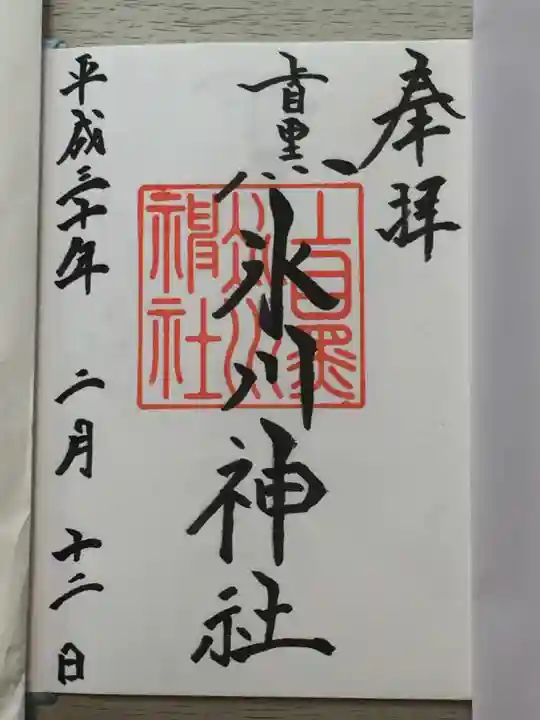 奉拝
上目黒
氷川神社
上目黒
氷川
神社
平成三十年 二月 十二日